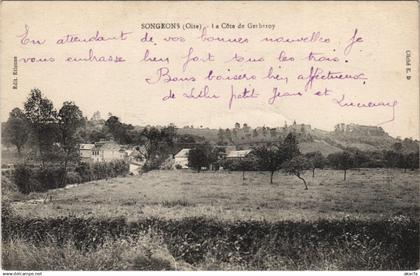 SONGEONS (Oise) — La Côte de Gerberoy
En attendant de vos bonnes nouvelles. je
vous embrasse bien fort tous les trois.
Bons baisers bien affectueux
de Lulu petit Jean et Lucienne
Edit. Etienne
Cliché E. D